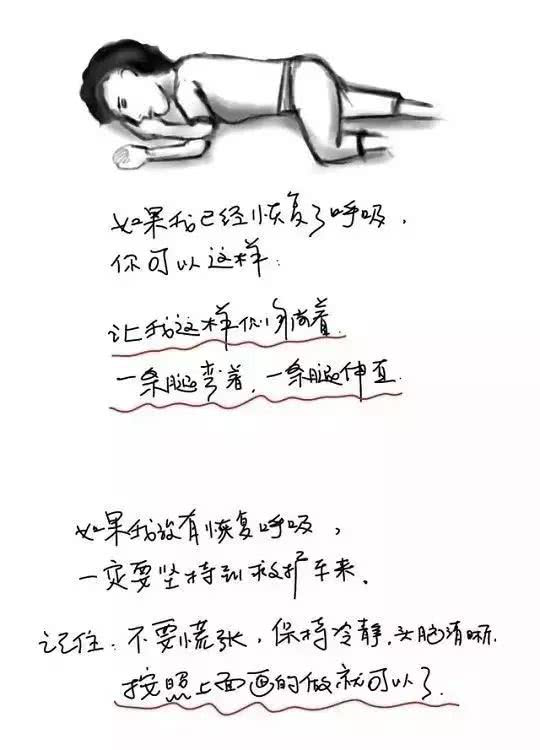 如果我已经恢复了呼吸，
你可以这样：
让我这样侧躺着
一条腿弯着，一条腿伸直
如果我没有恢复呼吸，
一定要坚持到救护车来。
记住：不要慌张，保持冷静，头脑清晰
按照上面画的做就可以了